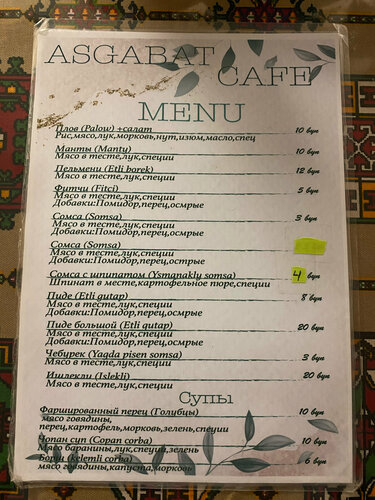 ASGABAT
CAFE
MENU
Плов (Palow) +салат 10 вул
Рис,мясо,лук,морковь,нут,изюм,масло,спец
Манты (Manty) 10 вул
Мясо в тесте,лук,специи
Пельмени (Etli borek) 12 вул
Мясо в тесте,лук,специи
Фитчи (Fitci) 5 вул
Мясо в тесте,лук,специи
Добавки:Помидор,перец,осмрые
Сомса (Somsa) 3 вул
Мясо в тесте,лук,специи
Добавки:Помидор,перец,осмрые
Сомса (Somsa)
Мясо в тесте,лук,специи
Добавки:Помидор,перец,острые
Сомса с шпипатом (Ysmanakly somsa) 4 вул
Шпинат в месте,картофельное пюре,специи
Пиде (Etli gutap) 8 вул
Мясо в тесте,лук,специи
Добавки:Помидор,перец,осмрые
Пиде большой (Etli gutap) 20 вул
Мясо в тесте,лук,специи
Добавки:Помидор,перец,осмрые
Чебурек (Yagda pisen somsa) 3 вул
Мясо в тесте,лук,специи
Ишлекли (Islekli) 20 вул
Мясо в тесте,лук,специи
Супы
Фаршированный перец (Голубцы) 10 вул
мясо говядины,
перец,картофель,морковь,зелень,специи
Чопан суп (Copan corba) 10 вул
Мясо баранины,лук,специи,зелень
Борщ (kelemli corba) 6 вул
мясо говядины,капуста,морковь